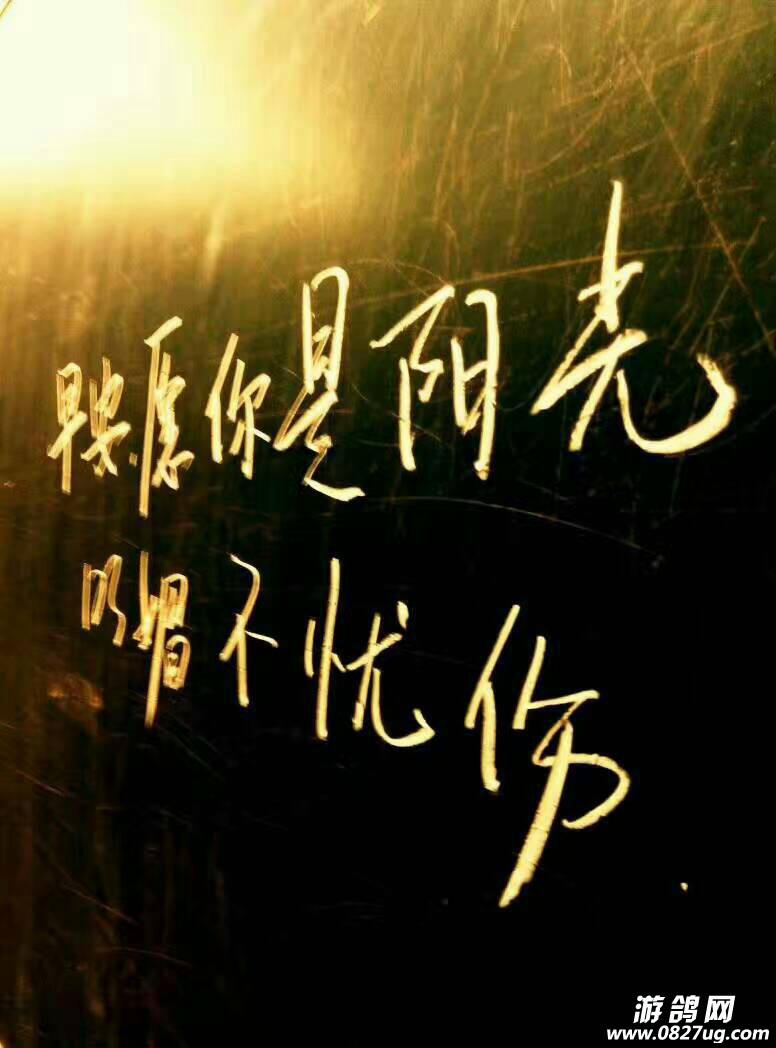 早安.愿你是阳光
明媚不忧伤
游鸽网
www.0827ug.com